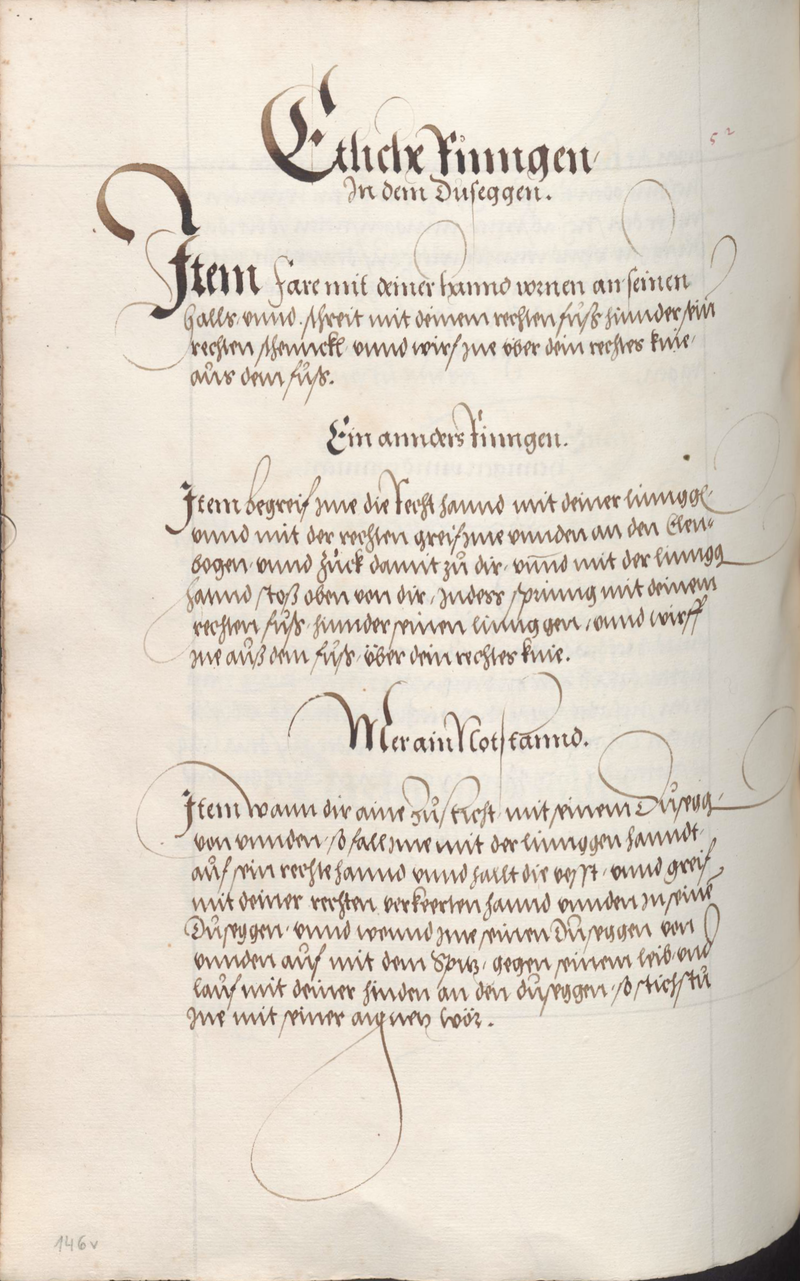 Etliche Ringen
In dem Duseggen.
52
Item Fare mit deiner hannd vornen an seinen
halls, vnnd schreit mit deinem rechten fuſs hinnder sein
rechten schennckl, vnnd wirf jne vber dein rechtes knie
aus dem fuſs.
Ein annders Ringen.
Item begreif jme die Recht hannd mit deiner linngge
vnnd mit der rechten greif jme vnnden an den Elen-
bogen, vnnd zuck damit zu dir, vnnd mit der lingg
hannd stoß oben von dir, Indess spring mit deinem
rechten fuſs, hinnder seinen linnggen, vnnd wirff
jne auß dem fuſs, über dein rechtes knie.
Mer ain Notstannd.
Item wann dir aine zu sticht mit seinem Dusegg
von vnnden, so fall jme mit der linnggen hanndt
auf sein rechte hannd vnnd hallt die vesst, vnnd greif
mit deiner rechten verkeerten hannd vnnden in seine
Duseggen, vnnd wennd jme seinen Duseggen von
vnnden auf mit dem Spitz, gegen seinem leib, vnd
lauf mit deiner hinden an den duseggen, so stichstu
jne mit seiner aignen wör.
146v